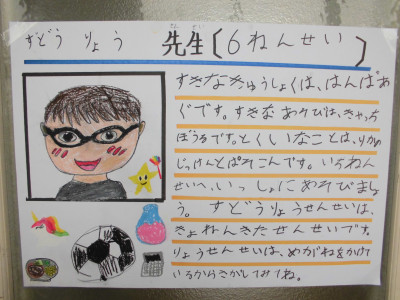 すどう りょう 先生〔6ねんせい〕
せんせい
すきなきゅうしょくは、はんばあ
ぐです。すきなあそびは、きゃっち
ぼうるです。とくいなことは、りかの
じっけんとぱそこんです。いちねん
せいへ、いっしょにあそびましょ
う。 すどうりょうせんせいは、
きょねんきたせんせいです。
りょうせんせいは、めがねをかけて
いるからさがしてみてね。